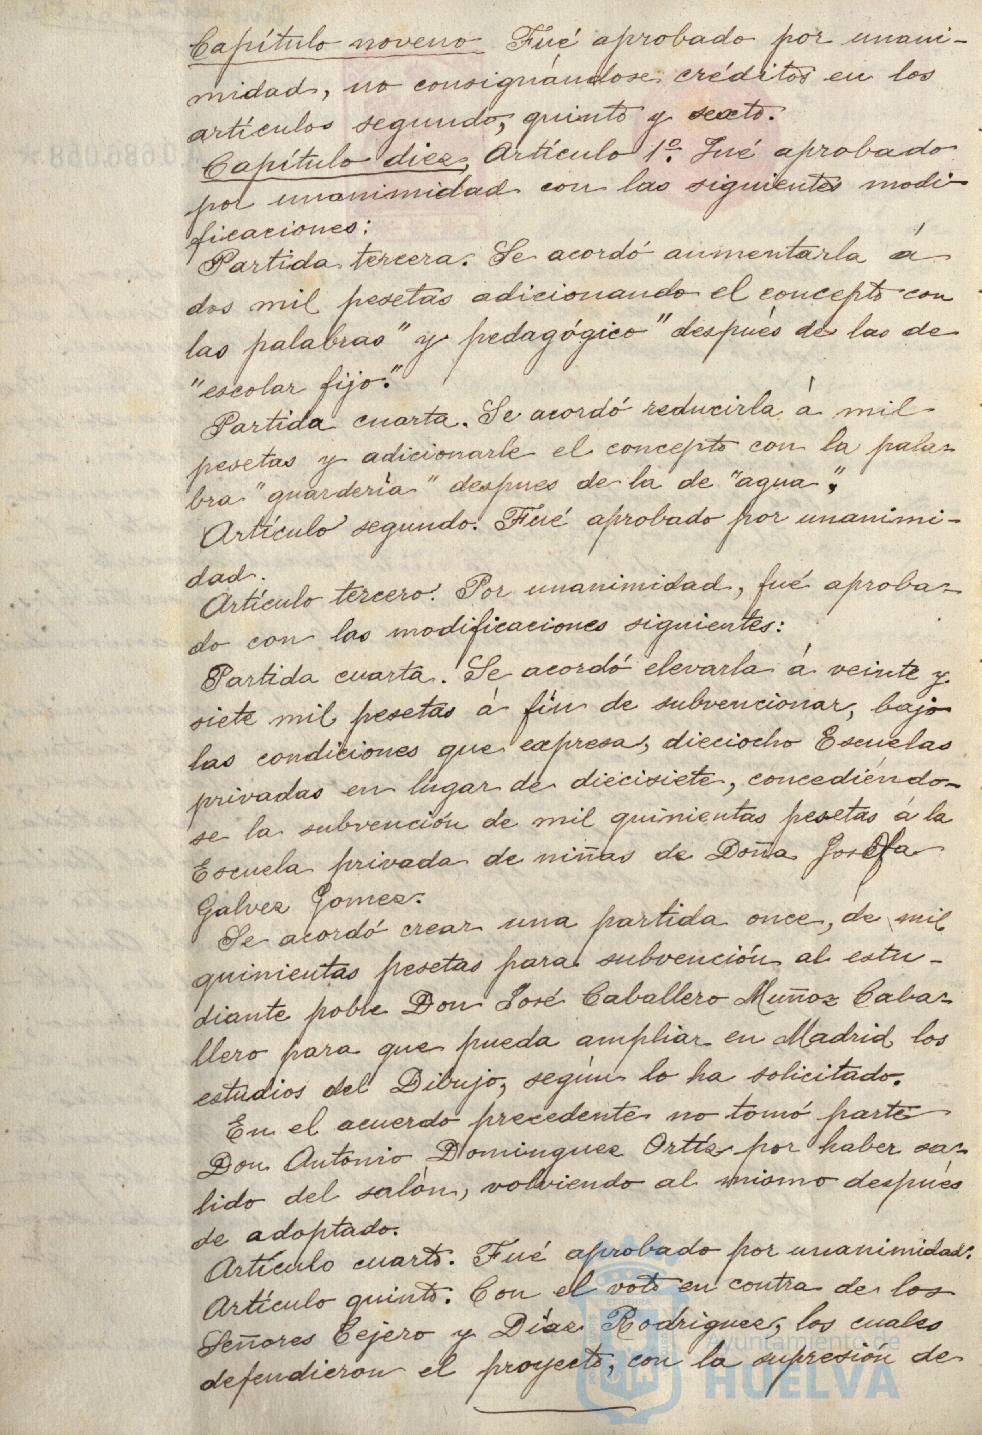 Capítulo noveno Fué aprobado por unani-
midad, no consignándose, créditos en los
artículos segundo, quinto y sexto.
Capítulo diez, Artículo 1º. Fué aprobado
por unanimidad con las siguientes modi-
ficaciones:
Partida tercera. Se acordó aumentarla á
dos mil pesetas adicionando el concepto con
las palabras "y pedagógico" después de las de
"escolar fijo."
Partida cuarta. Se acordó reducirla á mil
pesetas y adicionarle el concepto con la pala-
bra "guardería" despues de la de "agua".
Artículo segundo. Fué aprobado por unanimi-
dad.
Artículo tercero. Por unanimidad, fué aproba-
do con las modificaciones siguientes:
Partida cuarta. Se acordó elevarla á veinte y
siete mil pesetas á fin de subvencionar, bajo
las condiciones que expresa, dieciocho Escuelas
privadas en lugar de diecisiete, concediéndo-
se la subvención de mil quinientas pesetas á la
Escuela privada de niñas de Doña Josefa
Galvez Gomez.
Se acordó crear una partida once, de mil
quinientas pesetas para subvención al estu-
diante pobre Don José Caballero Muñoz Caba-
llero para que pueda ampliar en Madrid los
estudios del Dibujo, según lo ha solicitado.
En el acuerdo precedente no tomó parte
Don Antonio Dominguez Ortíz por haber sa-
lido del salón, volviendo al mismo después
de adoptado.
Artículo cuarto. Fué aprobado por unanimidad.
Artículo quinto. Con el voto en contra de los
Señores Tejero y Díaz Rodriguez, los cuales
defendieron el proyecto, con la supresión de
Ayuntamiento de
HUELVA